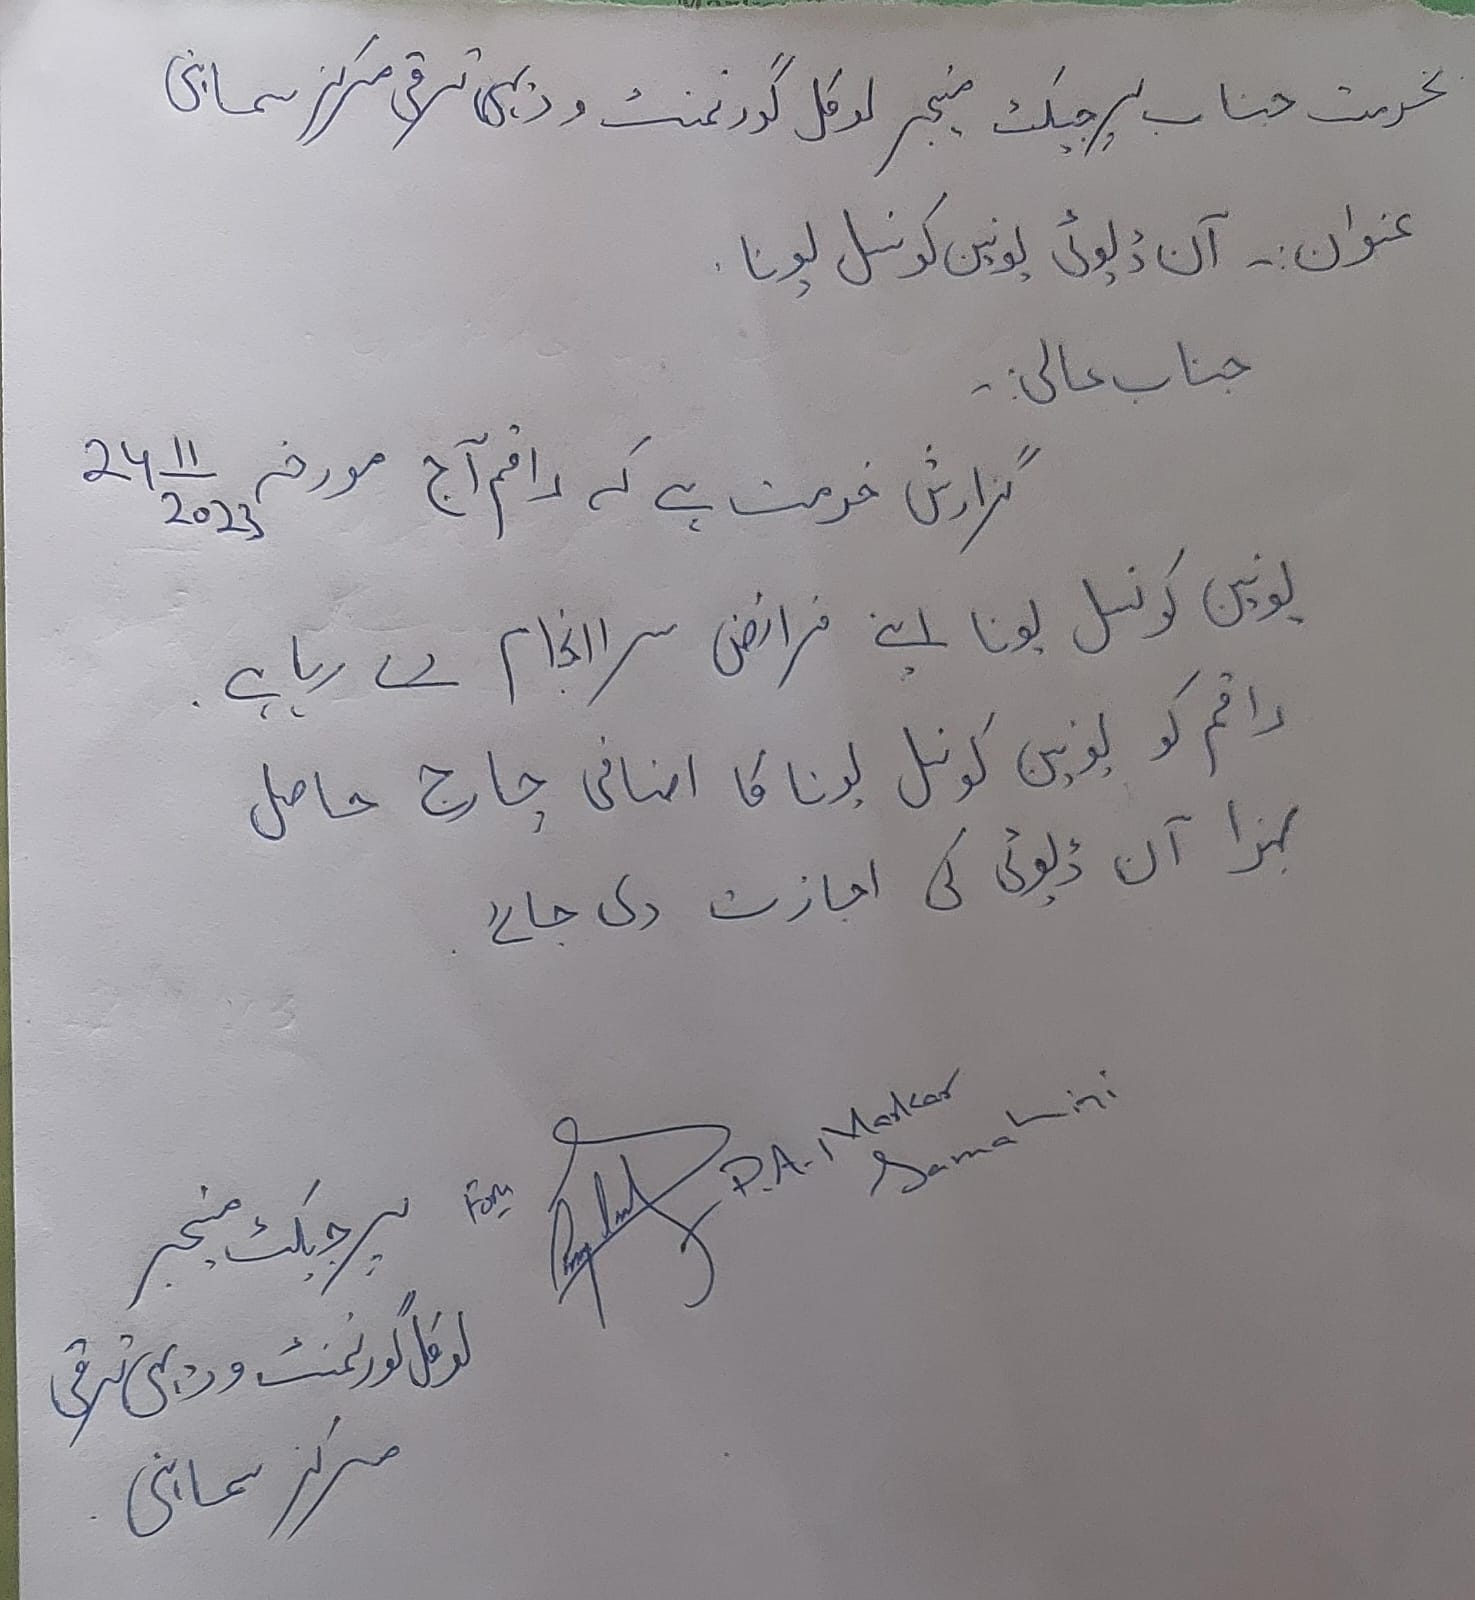 بخدمت جناب پرجیکٹ منیجر لوکل گورنمنٹ و دیہی ترقی مرکز سماہنی
عنوان:۔ آن ڈیوٹی یونین کونسل پونا۔
جناب عالی:۔
گزارش خدمت ہے کہ راقم آج مورخہ 24 11/2023
یونین کونسل پونا اپنے فرائض سراانجام دے رہا ہے۔
راقم کو یونین کونسل پونا کا اضافی چارج حاصل
لہذا آن ڈیوٹی کی اجازت دی جائے۔
For P.A. Markaz
Samahini
پرجیکٹ منیجر
لوکل گورنمنٹ و دیہی ترقی
مرکز سماہنی۔